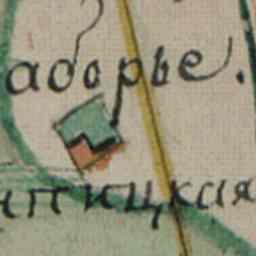 аборье.
птицкая